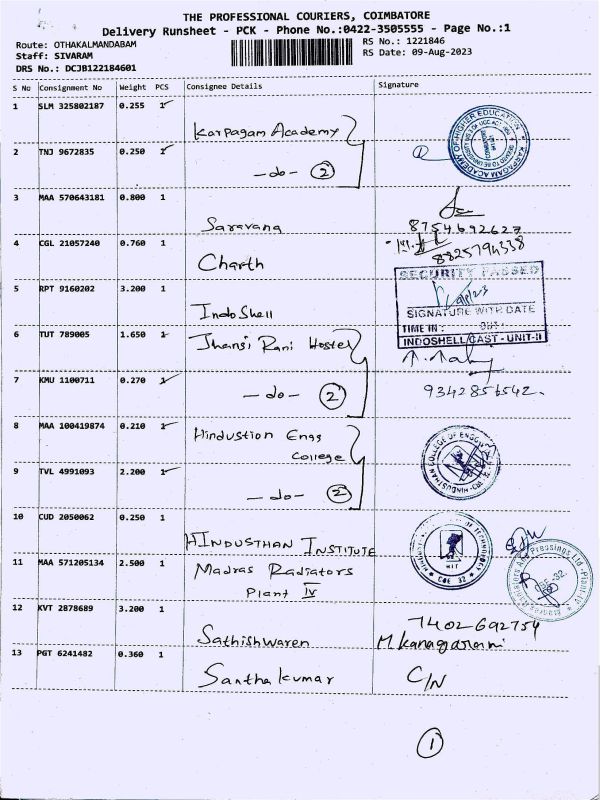 THE PROFESSIONAL COURIERS, COIMBATORE
Delivery Runsheet - PCK - Phone No.:0422-3505555 - Page No.:1
Route: OTHAKALMANDABAM
RS No.: 1221846
Staff: SIVARAM
RS Date: 09-Aug-2023
DRS No.: DCJB122184601
S No Consignment No Weight PCS Consignee Details Signature
1 SLM 325802187 0.255 1
Karpagam Academy
KARPAGAM ACADEMY OF HIGHER EDUCATION
2 TNJ 9672835 0.250 1
-do- 2
3 MAA 570643181 0.800 1
Saravana
8754692627
4 CGL 21057240 0.760 1
8825794338
Charth
5 RPT 9160202 3.200 1
SECURITY PASSED
SIGNATURE WITH DATE
Indo Shell
TIME IN : OUT:
6 TUT 789005 1.650 1
INDOSHELL CAST - UNIT-II
Jhansi Rani Hostel
7 KMU 1100711 0.270 1
9342856542.
-do- 2
8 MAA 100419874 0.210 1
Hindustion Engg
College
9 TVL 4991093 2.200 1
-do- 2
10 CUD 2050062 0.250 1
HINDUSTHAN INSTITUTE
HIT
COE 32
11 MAA 571205134 2.500 1
Madras Radiators
Plant IV
12 KVT 2878689 3.200 1
7402692754
Sathishwaren
13 PGT 6241482 0.360 1
Santhakumar
C/N
1